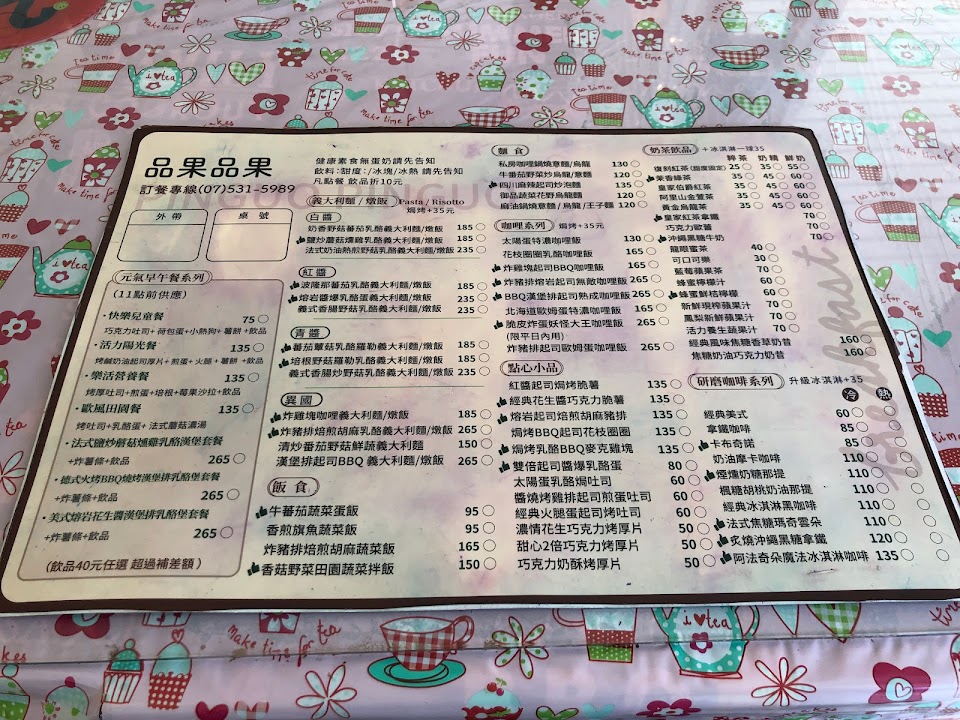 品果品果
訂餐專線(07)531-5989
健康素食無蛋奶請先告知
飲料:甜度:/冰塊/冰熱 請先告知
凡點餐 飲品折10元
外帶
桌號
元氣早午餐系列
(11點前供應)
・快樂兒童餐 75
巧克力吐司+荷包蛋+小熱狗+薯餅+飲品
・活力陽光餐 135
烤鹹奶油起司厚片+煎蛋+火腿+薯餅+飲品
・樂活營養餐 135
烤厚片吐司+煎蛋+培根+莓果沙拉+飲品
・歐風田園餐 135
烤吐司+乳酪蛋+法式蘑菇濃湯
・法式鹽炒蘑菇燻雞乳酪漢堡套餐
+炸薯條+飲品 265
・德式火烤BBQ燒烤漢堡排乳酪堡套餐
+炸薯條+飲品 265
・美式熔岩花生醬漢堡排乳酪堡套餐
+炸薯條+飲品 265
(飲品40元任選 超過補差額)
義大利麵/燉飯 Pasta / Risotto
焗烤+35元
白醬
奶香野菇蕃茄乳酪義大利麵/燉飯 185
鹽炒蘑菇燻雞乳酪義大利麵/燉飯 235
法式奶油熱煎野菇乳酪義大利麵/燉飯 235
紅醬
波隆那蕃茄乳酪義大利麵/燉飯 185
熔岩醬爆乳酪蛋義大利麵/燉飯 235
義式香腸乳酪義大利麵/燉飯 235
青醬
蕃茄蕈菇乳酪羅勒義大利麵/燉飯 185
培根野菇羅勒乳酪義大利麵/燉飯 235
義式香腸炒野菇乳酪義大利麵/燉飯 235
異國
炸雞塊咖哩義大利麵/燉飯 185
炸豬排焙煎胡麻乳酪義大利麵/燉飯 265
清炒番茄野菇鮮蔬義大利麵 150
漢堡排起司BBQ 義大利麵/燉飯 265
飯食
牛蕃茄蔬菜蛋飯 95
香煎旗魚蔬菜飯 95
炸豬排焙煎胡麻蔬菜飯 165
香菇野菜田園蔬菜拌飯 150
麵食
私房咖哩鍋燒意麵/烏龍 130
牛番茄野菜炒烏龍/意麵 120
四川麻辣起司炒泡麵 135
御品蔬菜花野炒烏龍 120
麻油鍋燒意麵/烏龍/王子麵 120
咖哩系列 焗烤+35元
太陽蛋特濃咖哩飯 130
花枝圈圈乳酪咖哩飯 165
炸雞塊起司BBQ咖哩飯 165
炸豬排焙煎起司無敵咖哩飯 265
BBQ漢堡排起司熟成咖哩飯 265
北海道歐姆蛋特濃咖哩飯 165
脆皮炸蛋妖怪大王咖哩飯 265
(限平日內用)
炸豬排起司歐姆蛋咖哩飯 265
點心小品
紅醬起司焗烤脆薯 135
經典花生醬巧克力脆薯 135
熔岩起司焙煎胡麻豬排 135
焗烤BBQ起司花枝圈圈 135
焗烤BBQ乳酪麥克雞塊 135
雙倍起司醬爆乳酪蛋 80
太陽蛋乳酪焗吐司 60
醬燒烤雞排起司煎蛋吐司 60
經典火腿蛋起司烤吐司 60
濃情花生巧克力烤厚片 50
甜心2倍巧克力烤厚片 50
巧克力奶酥烤厚片 50
奶茶飲品 +冰淇淋一球35
醇茶 奶精 鮮奶
復刻紅茶(甜度固定) 25 35 55
茉香綠茶 35 45 60
皇家伯爵紅茶 35 45 60
阿里山金萱茶 35 45 60
黃金烏龍茶 35 45 60
皇家紅茶拿鐵 70
巧克力歐蕾 70
沖繩黑糖牛奶 70
龍眼蜜茶 40
可口可樂 30
藍莓蘋果茶 70
蜂蜜檸檬汁 60
蜂蜜鮮桔檸檬 60
新鮮現榨蘋果汁 70
鳳梨新鮮蘋果汁 70
活力養生蔬果汁 70
經典風味焦糖香草奶昔 160
焦糖奶油巧克力奶昔 160
研磨咖啡系列 升級冰淇淋+35
冷 熱
經典美式 60
拿鐵咖啡 85
卡布奇諾 85
奶油摩卡咖啡 110
煙燻奶糖那提 110
楓糖胡桃奶油那提 110
經典冰淇淋黑咖啡 110
法式焦糖瑪奇雲朵 110
炙燒沖繩黑糖拿鐵 120
阿法奇朵魔法冰淇淋咖啡 135